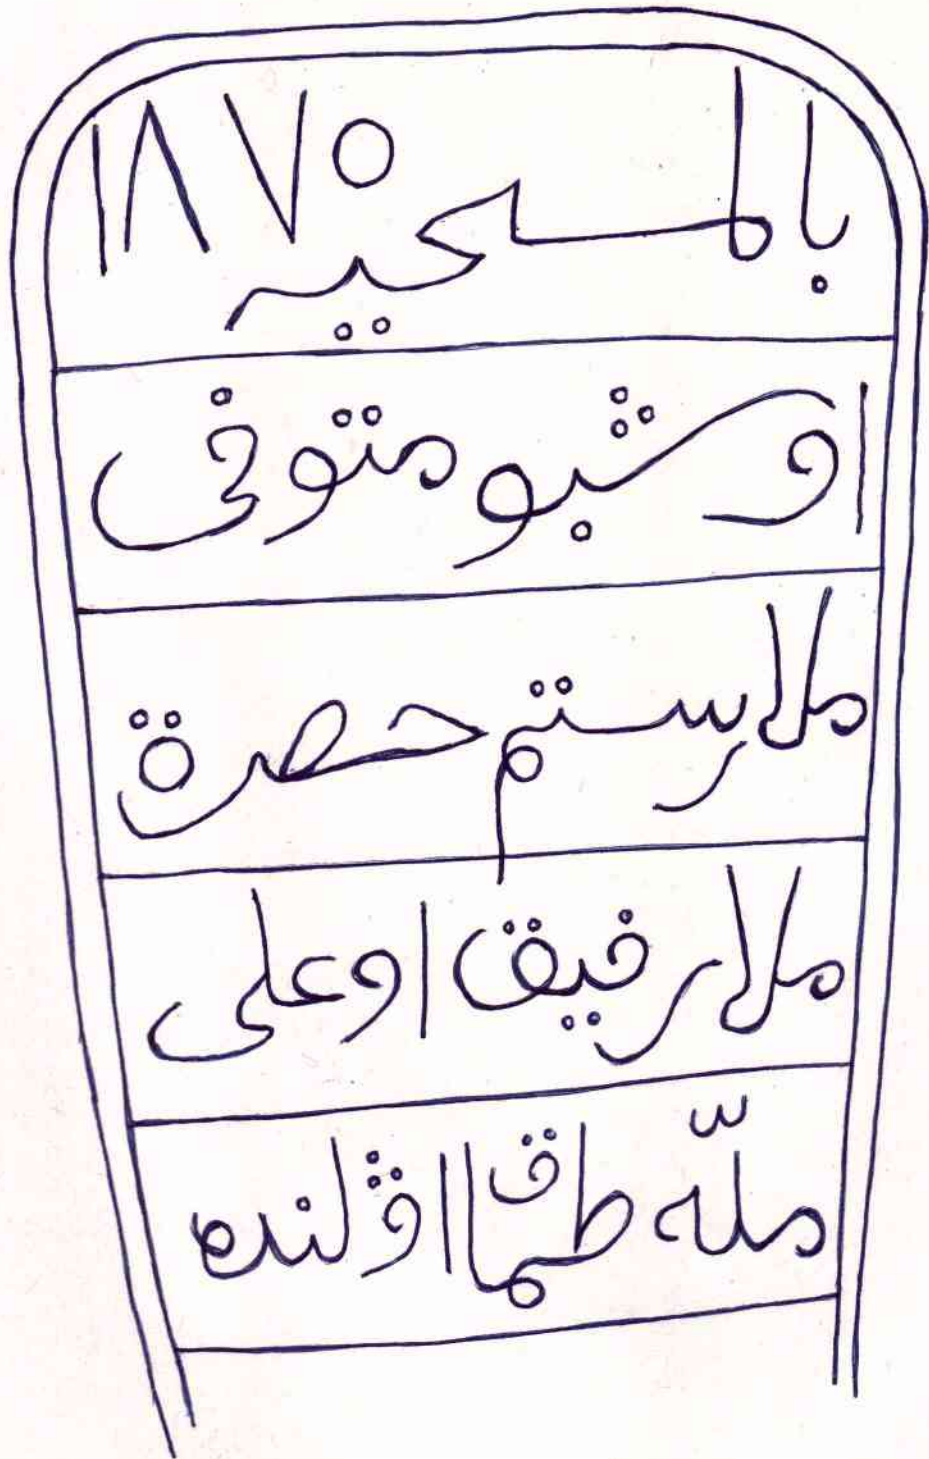 بالمسحيه ١٨٧٠
اوشبو متوفى
ملا رستم حصرة
ملا رفيق اوعلى
ملّه طمقا اۋلنده